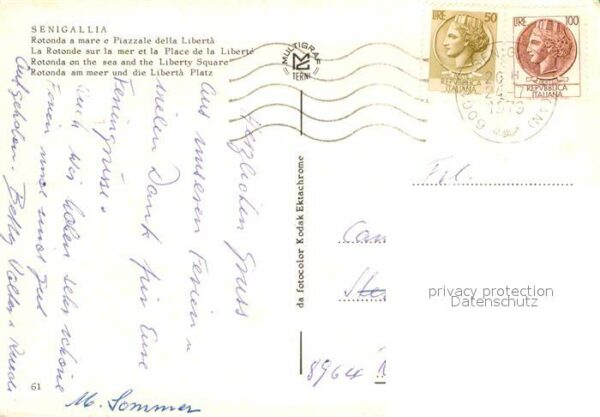 SENIGALLIA
Rotonda a mare e Piazzale della Libertà
La Rotonde sur la mer et la Place de la Liberté
Rotonda on the sea and the Liberty Square
Rotonda am meer und die Libertà Platz
MULTIGRAF
TERNI
LIRE 50
REPVBBLICA
ITALIANA
LIRE 100
REPVBBLICA
ITALIANA
Herzlichen Gruss
aus unseren Ferien u
vielen Dank für Eure
Auch wir haben sehr schöne
Ferien und sind gut
M. Sommer
61
da fotocolor Kodak Ektachrome
Frl.
8964
privacy protection
Datenschutz